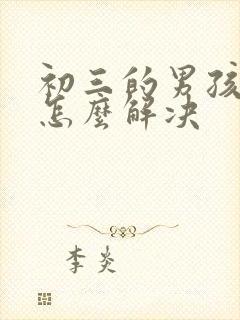 初三的男孩
怎麼解决
李炎